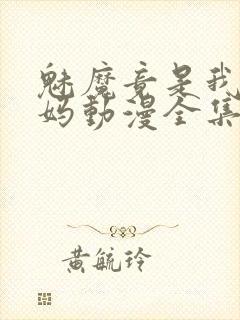 魅魔竟是我
妈動漫全集
黃毓玲